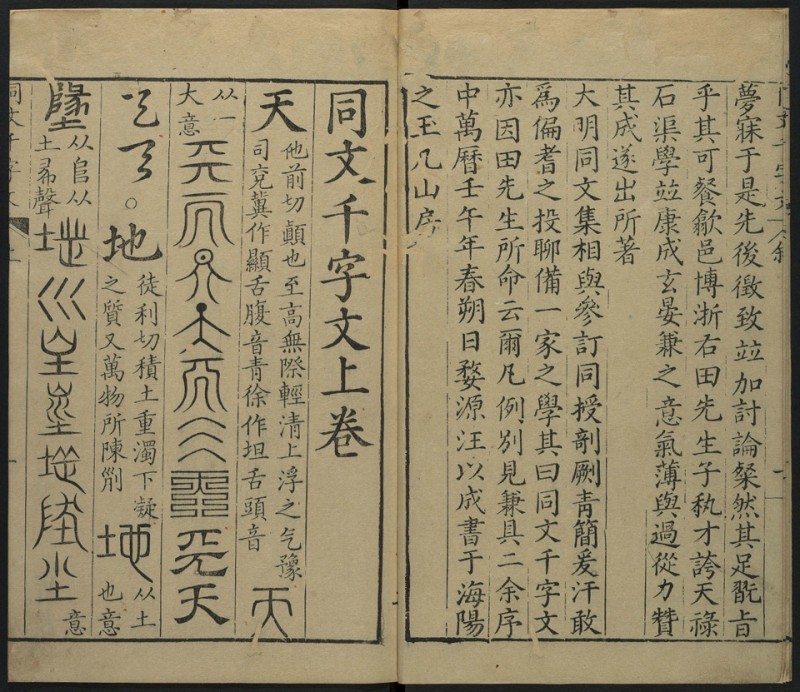 夢寐于是先後徵致竝加討論粲然其足翫旨
乎其可餐歙邑博浙右田先生子秇才誇天祿
石渠學竝康成玄晏兼之意氣薄與過從力贊
其成遂出所著
大明同文集相與參訂同授剞劂青簡爰汗敢
爲偏耆之投聊備一家之學其曰同文千字文
亦因田先生所命云爾凡例別見兼具二余序
中萬曆壬午年春朔日婺源汪以成書于海陽
之玉几山房
同文千字文上卷
天
他前切顚也至高無際輕清上浮之气豫
司兗冀作顯舌腹音青徐作坦舌頭音
天
从一
大意
地
徒利切積土重濁下凝
之質又萬物所陳𠛱
地
从土
也意
墬
从𨸏从
土㣇聲
地
意
同文千字文